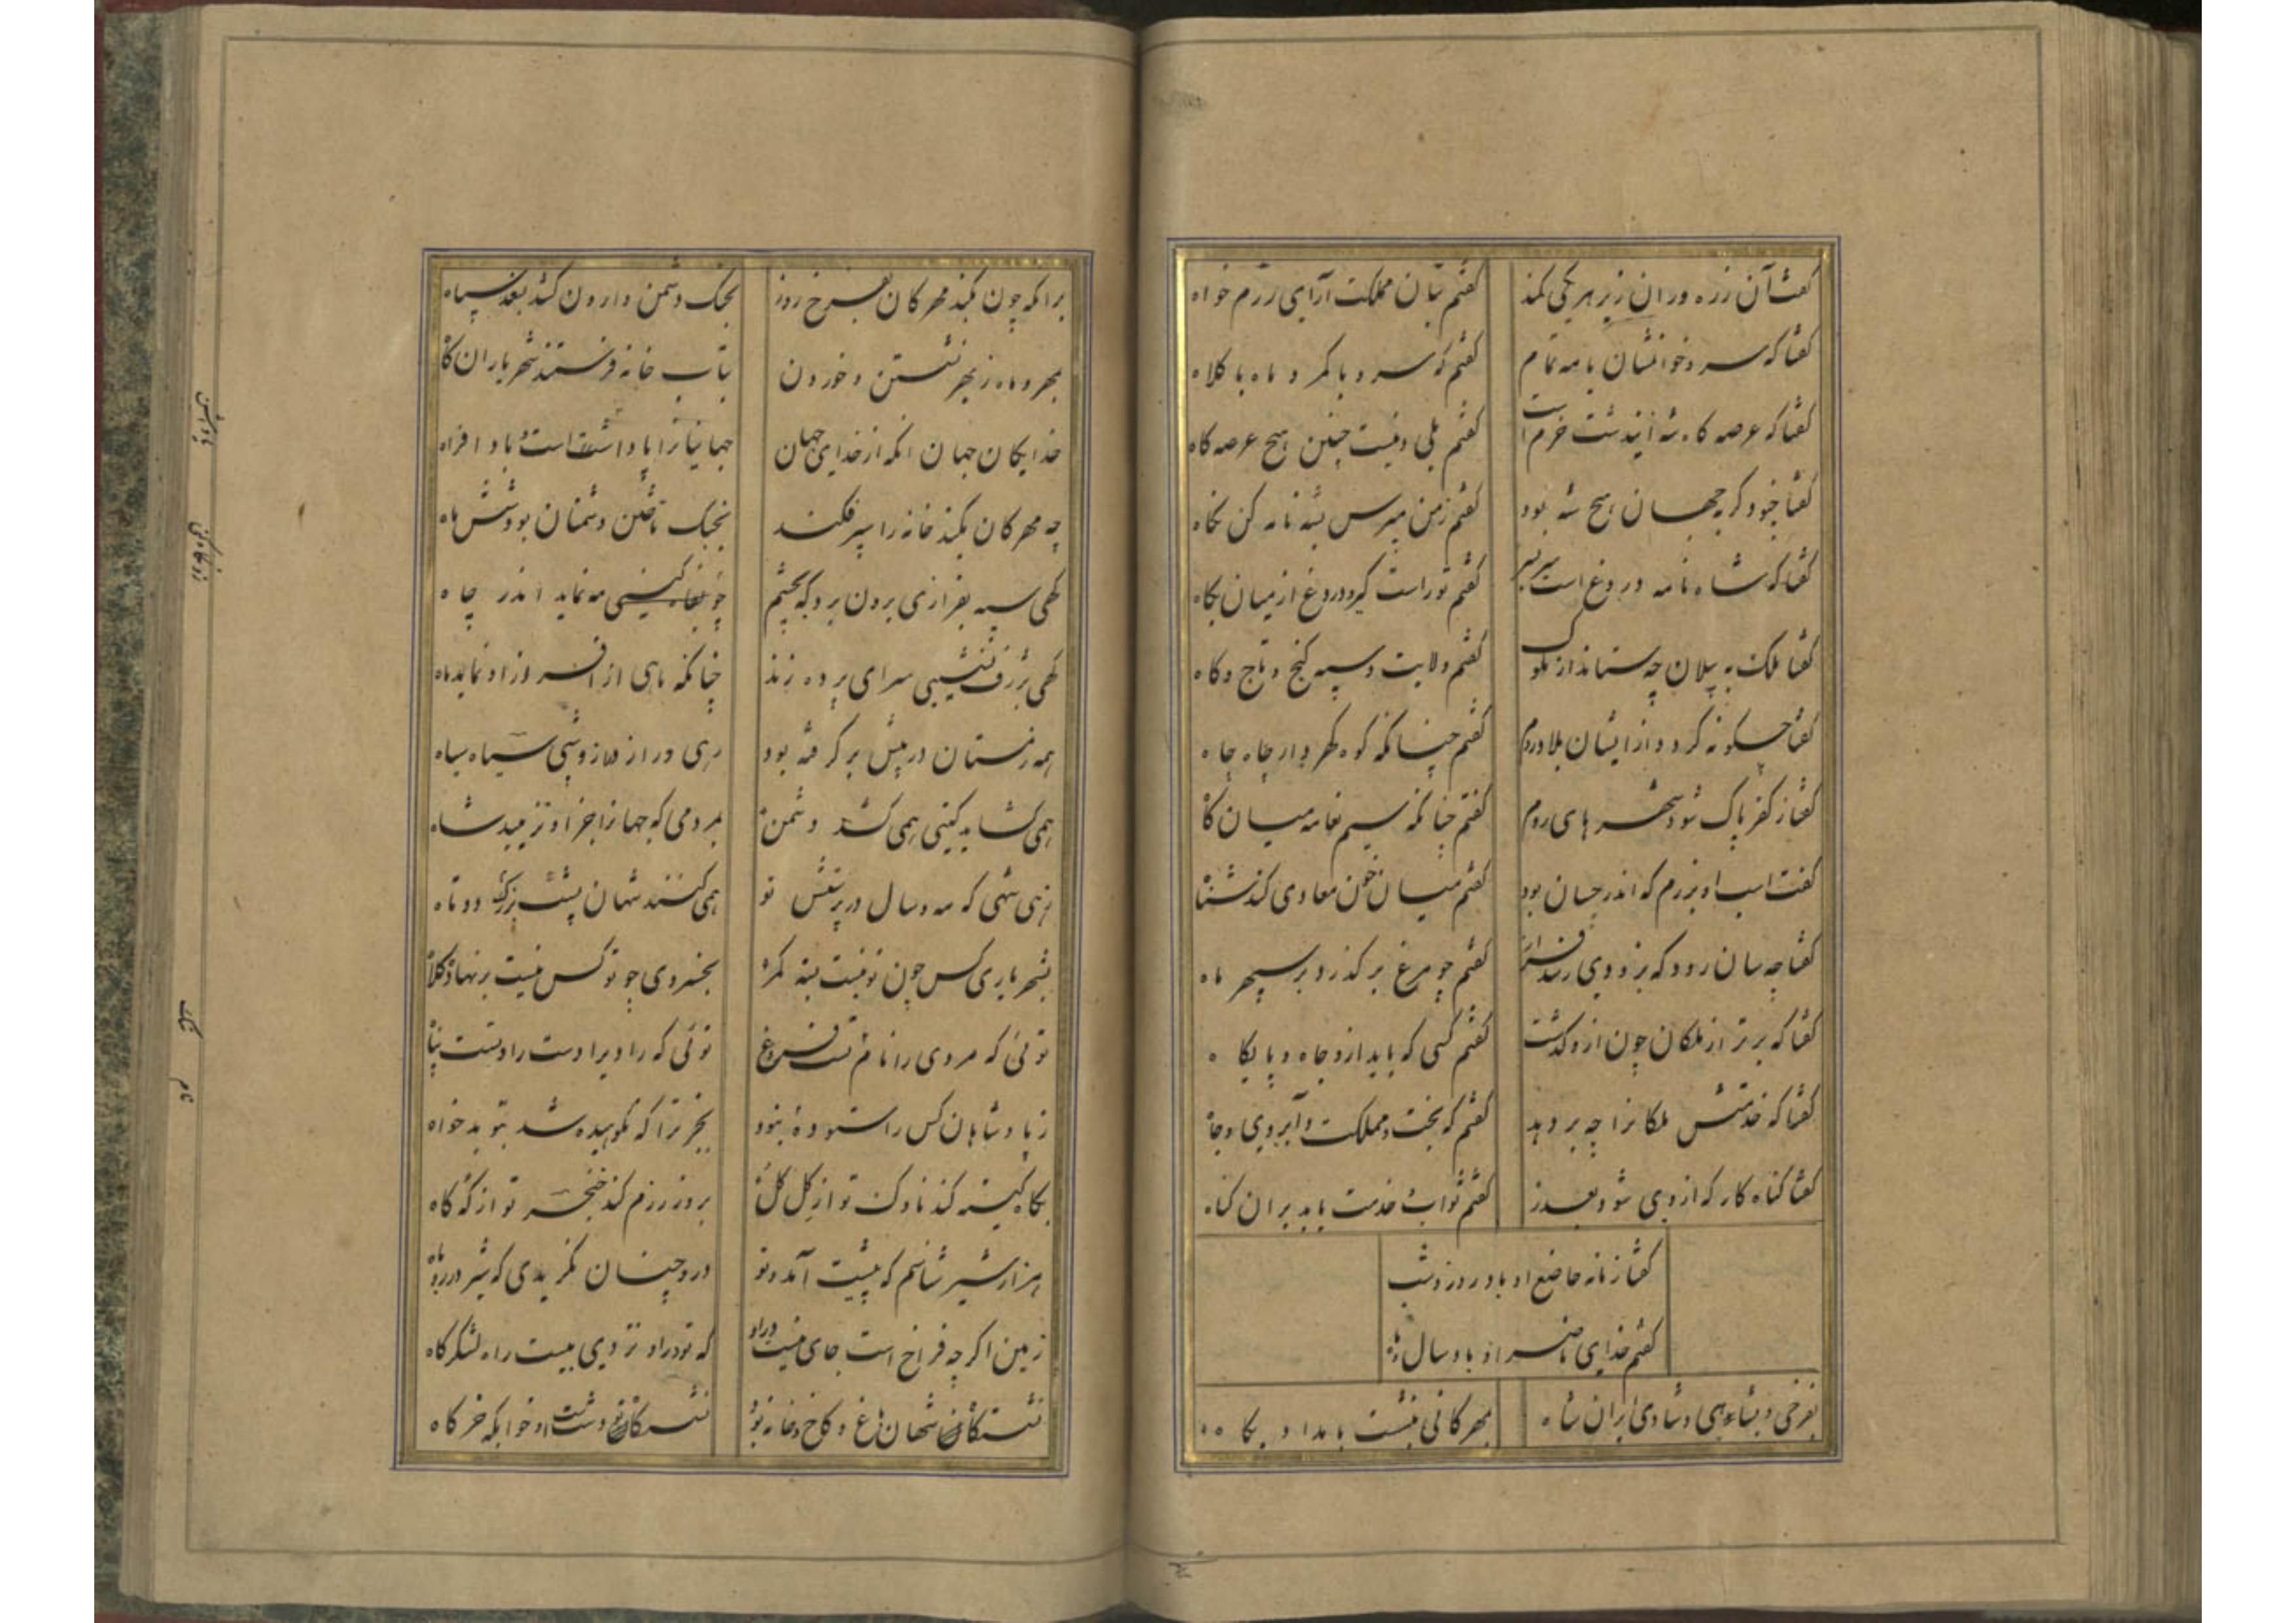 گفت آن زره وران زبر هر یکی کمند
گفتم بتان مملکت آرای رزم خواه
گفتا که سرو خوانشان یا مه تمام
گفتم که سرو با کمر و ماه با کلاه
گفتا که عرصه گاه شه اینت خرم است
گفتم بلی و نیست چنین هیچ عرصه گاه
گفتا چنو دگر بجهان هیچ شه بود
گفتم ز من مپرس بشه نامه کن نگاه
گفتا که شاه نامه دروغ است سربسر
گفتم تو راست گیر و دروغ از میان بکاه
گفتا ملک به پیلان چه ستاند از ملوک
گفتم ولایت و سپه گنج و تاج و گاه
گفتا چگونه گردد از ایشان بلاد روم
گفتم چنانکه کوه کهر وار چاه چاه
گفتا ز کفر پاک شود شهر های روم
گفتم چنانکه سیم نغایه میان گاه
گفت اسب او برزم که اندر چسان بود
گفتم میان خون معادی کند شناه
گفتا چه سان رود که بزودی رسد فراز
گفتم چو مرغ بر گذرد بر سپهر ماه
گفتا که برتر از ملکان چون ازو گذشت
گفتم کسی که یابد ازو جاه و پایگاه
گفتا که خدمتش ملکانرا چه بر دهد
گفتم که بخت و مملکت و آبروی و جاه
گفتا گناه کار که از وی شود بعذر
گفتم ثواب خدمت یابد بران گناه
گفتا زمانه خاضع او باد روز و شب
گفتم خدای ناصر او باد سال و ماه
بفرخی و بشاهی و شادی ایران شاه
بمهرکانی بنشست بامداد پگاه
برانکه چون بکند مهرکان بفرخ روز
بجنگ دشمن وارون کشد بغز سپاه
بمهر و ماه ز بهر نشستن و خوردن
بتاب خانه فرستند شهریاران گاه
خدایگان جهان آنکه از خدای جهان
جهانیانرا پاداشت است و باد افراه
چه مهرکان بکند خانه را سپر فکند
بجنگ تاختن دشمنان بود شش ماه
گهی سپه بفرازی برون برد که بچشم
گهی بژرف نشیبی سرای پرده زند
چنانکه ماهی از افسر وز او نماید ماه
همه زمستان در پیش بر گرفته بود
رهی دراز و شبی سیاه سیاه
همی گشاید گیتی همی کشد دشمن
بمردمی که جهانرا جز او نزیبد شاه
زهی شهی که مه و سال در پرستش تو
همی کنند شهان پشت بزرگ دو تاه
بشهریاری کس چون تو نبست کمر
بخسروی چو تو کس نیست بر نهاده کلاه
توئی که مردی را نام تست فروغ
توئی که رادی را دست راد تست پناه
ز پادشاهان کس را ستوده بنود
بجز ترا که نکوهیده شد بتو بدخواه
بگاه کینه کند ناوک تو از گل گل
بروز رزم کند خنجر تو از که کاه
هزار شیر شناسم که پیشت آمد و تو
درو چنان نگریدی که شیر در روباه
زمین اگرچه فراخ است جای نیست درو
که تو درو نزدی بیست راه لشکرگاه
نشستگاه شهان باغ و کاخ و خانه بود
نشستگاه تو دشت است و خوابگه خرگاه